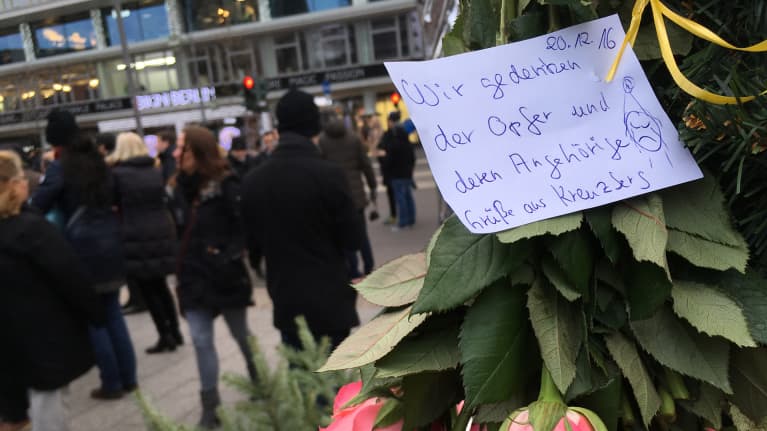 20.12.16
Wir gedenken
der Opfer und
deren Angehörige!
Grüße aus Kreuzberg
BIKINI BERLIN